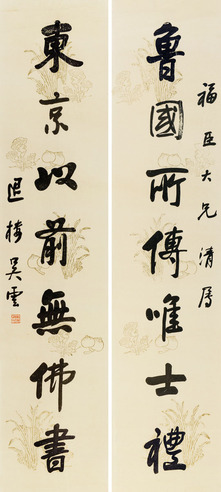 福臣大兄清属
魯國所傳唯士禮
東京以前無佛書
退樓吳雲